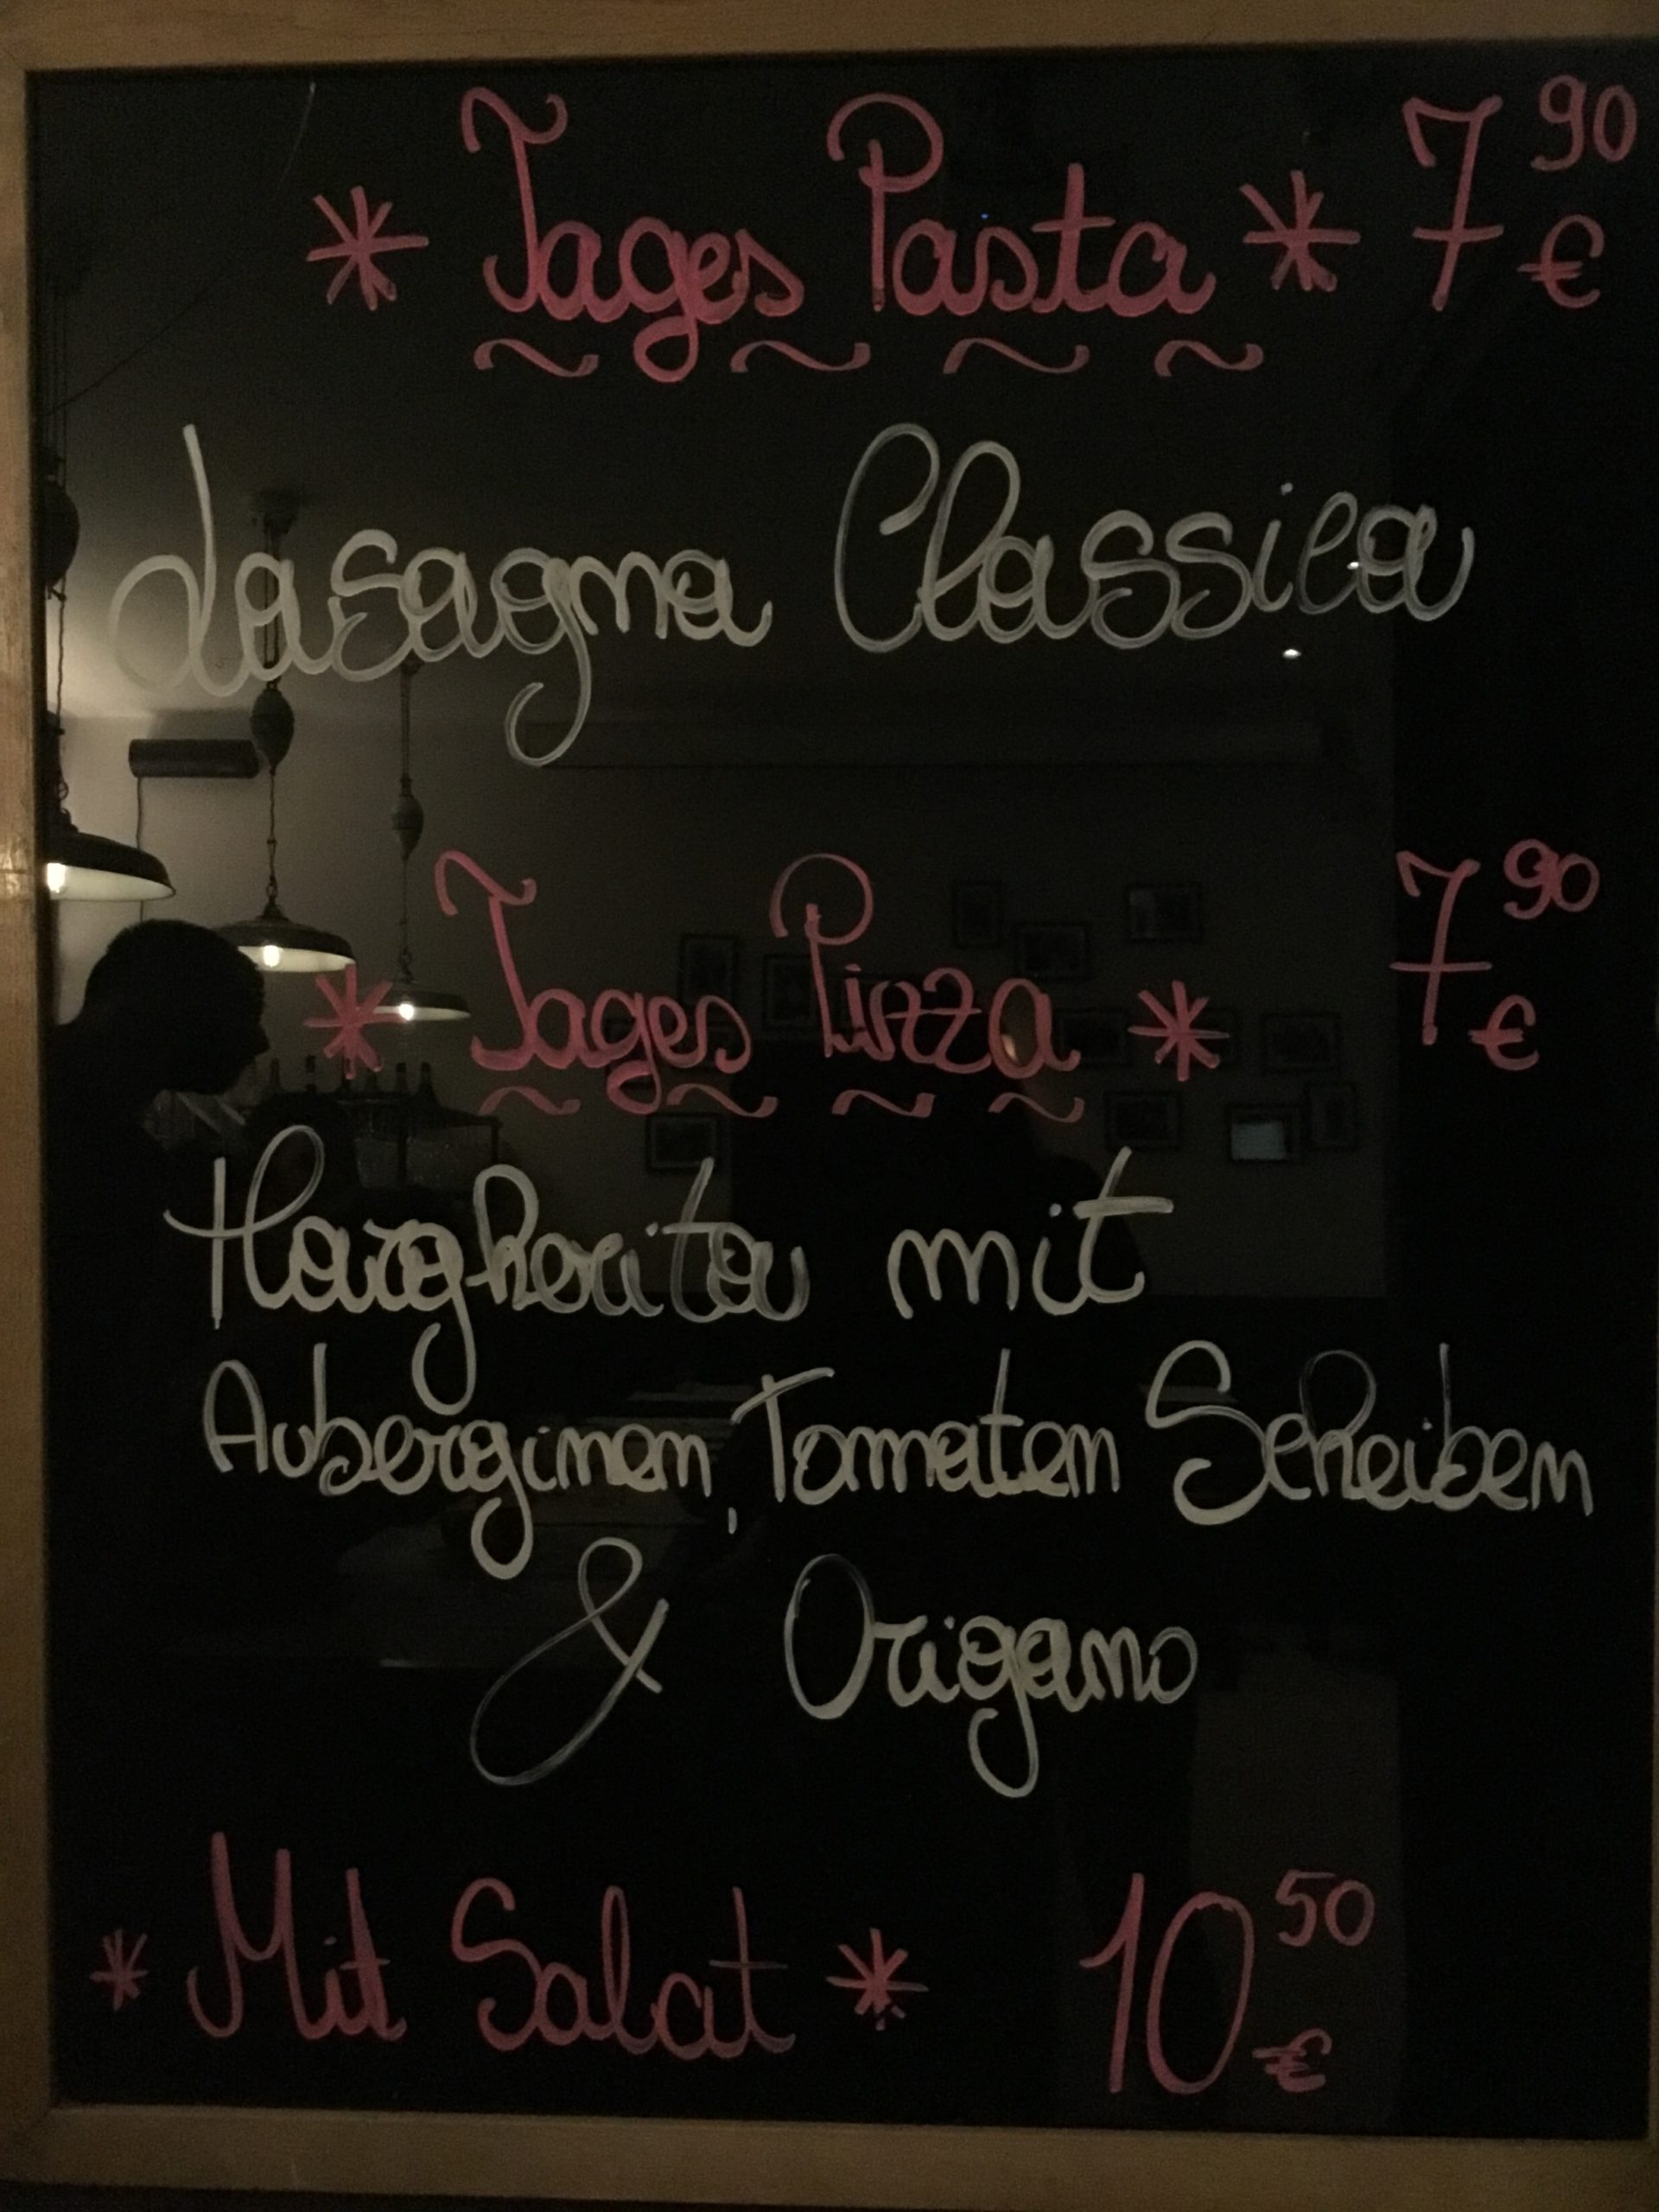 * Tages Pasta * 7 90 €
Lasagna Classica
* Tages Pizza * 7 90 €
Margherita mit
Auberginen, Tomaten Scheiben
& Origano
* Mit Salat * 10 50 €